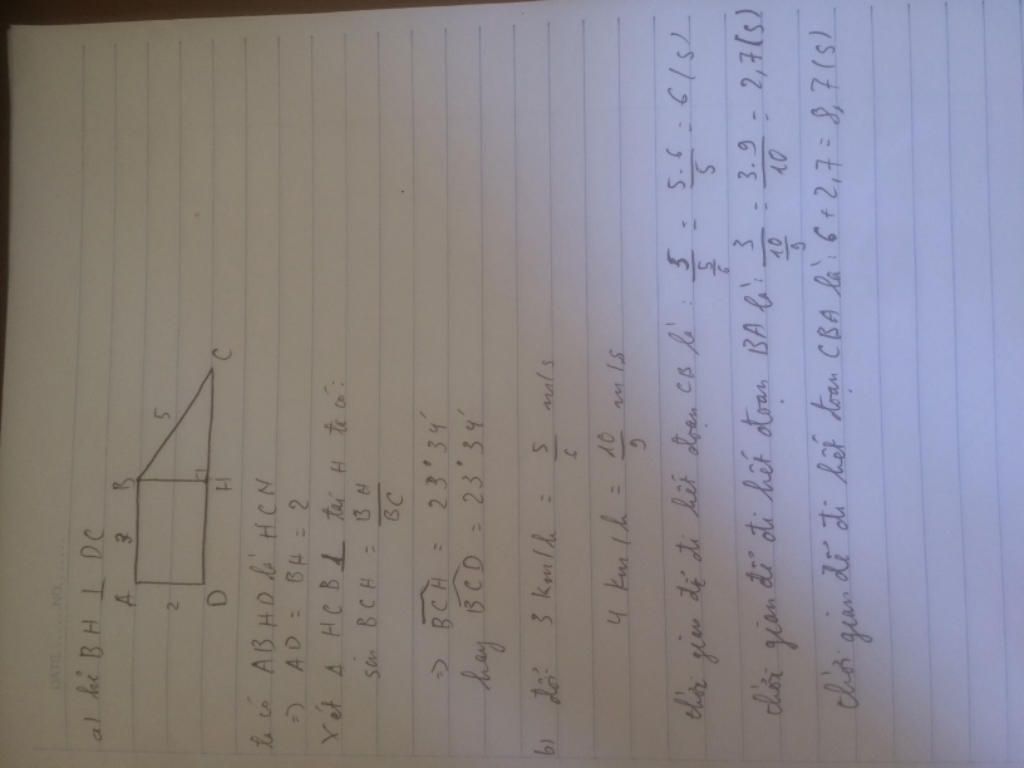 DATE........NO........
a) kẻ BH ⊥ DC
A 3 B
2 5
D H C
ta có ABHD là HCN
=) AD = BH = 2
Xét Δ HCB ⊥ tại H ta có:
sin BCH = BH/BC
=) BCH = 23°34'
hay BCD = 23°34'
b) đổi 3 km/h = 5/6 m/s
4 km/h = 10/9 m/s
thời gian để đi hết đoạn CB là : 5/(5/6) = 5.6/5 = 6 (s)
thời gian để đi hết đoạn BA là: 3/(10/9) = 3.9/10 = 2,7(s)
thời gian để đi hết đoạn CBA là: 6 + 2,7 = 8,7(s)